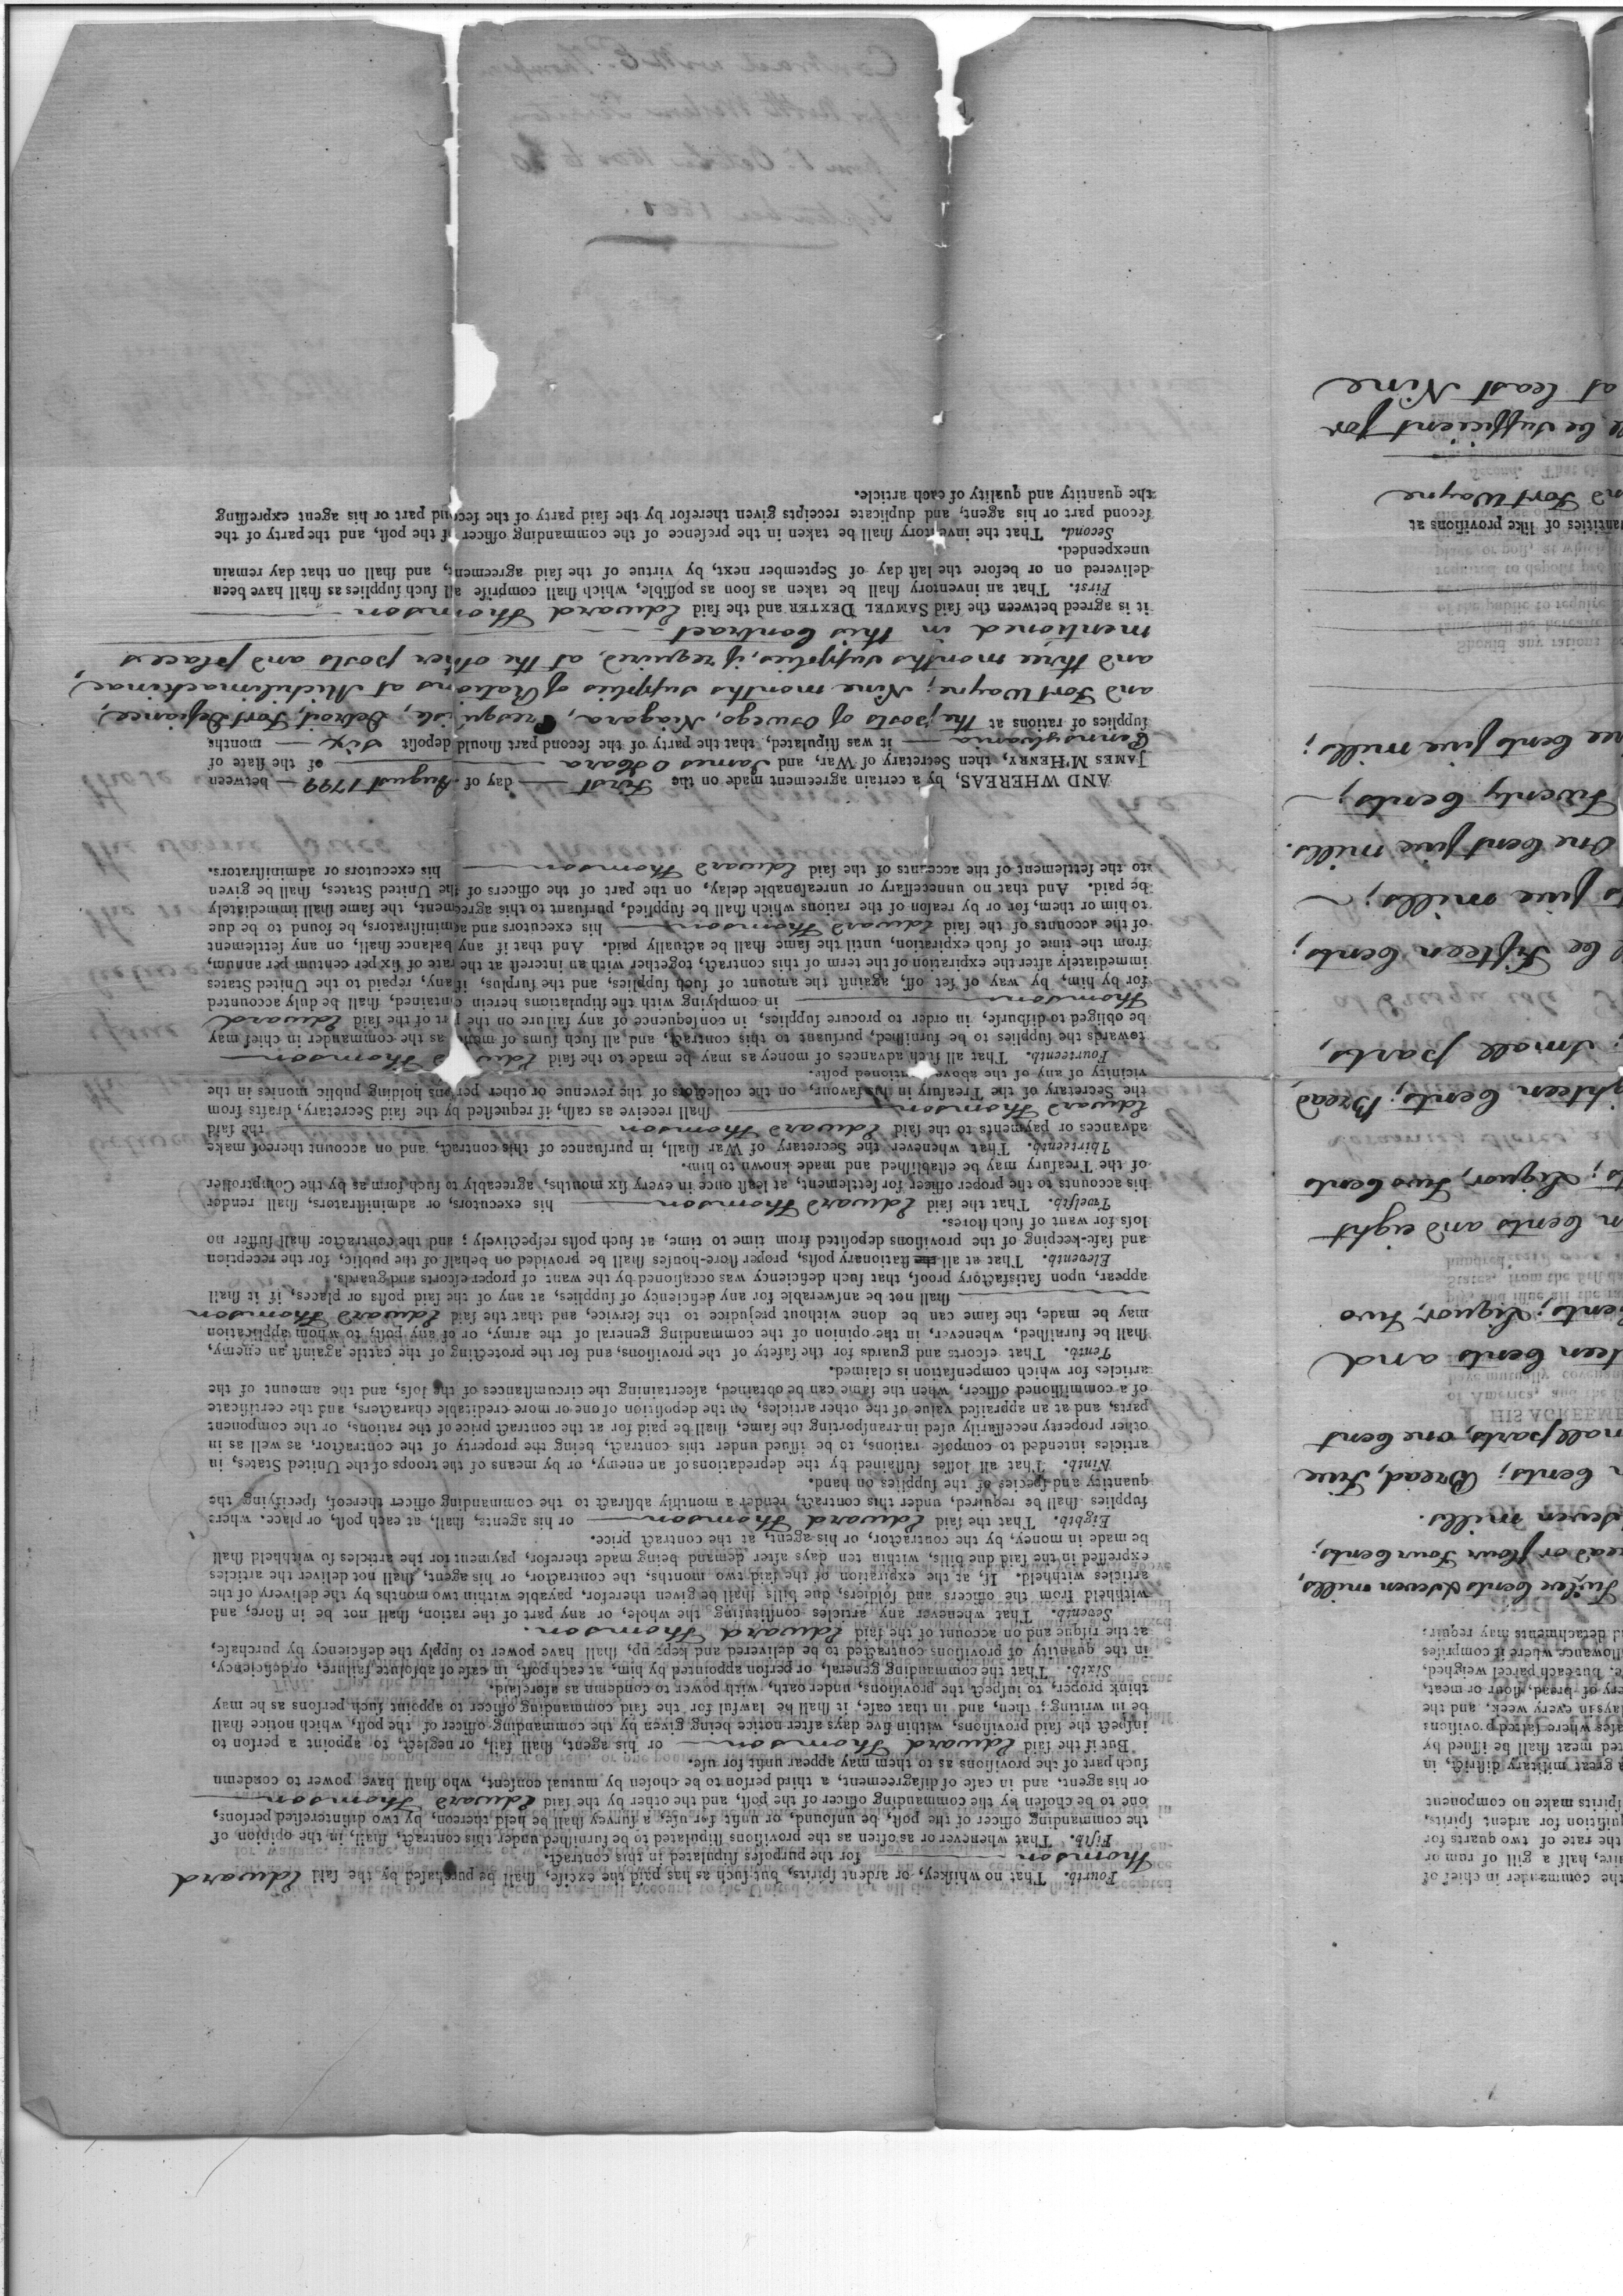 the commander in chief of
five, half a gill of rum or
the rate of two quarts for
quiſition for ardent ſpirits,
ſpirits make no component
a great military diſtrict, in
ted meat ſhall be iſſued by
aſes where ſalted proviſions
days in every week, and the
ery of bread, flour or meat,
e, but each parcel weighed,
llowance where it comprises
d detachments may require
Twelve Cents & seven mills,
ead or flour Four Cents;
seven mills.
n Cents; Bread, Five
mall parts, one Cent
teen Cents and
Cents; Liquor, Two
n Cents and eight
ts; Liquor, Two Cents
ghteen Cents; Bread
; small parts,
l be Fifteen Cents;
ts five mills;
One Cent five mills.
Twenty Cents;
ree Cents five mills;
uantities of like proviſions at
nd Fort Wayne
ll be sufficient for
at least Nine
Fourth. That no whiſkey, or ardent ſpirits, but ſuch as has paid the exciſe, ſhall be purchaſed by the ſaid Edward
Thomson for the purpoſes ſtipulated in this contract.
Fifth. That whenever or as often as the proviſions ſtipulated to be furniſhed under this contract, ſhall, in the opinion of
the commanding officer of the poſt, be unſound, or unfit for uſe, a ſurvey ſhall be held thereon, by two diſintereſted perſons,
one to be choſen by the commanding officer of the poſt, and the other by the ſaid Edward Thomson
or his agent, and in caſe of diſagreement, a third perſon to be choſen by mutual conſent, who ſhall have power to condemn
ſuch part of the proviſions as to them may appear unfit for uſe.
But if the ſaid Edward Thomson or his agent, ſhall fail, or neglect, to appoint a perſon to
inſpect the ſaid proviſions, within five days after notice being given by the commanding officer of the poſt, which notice ſhall
be in writing; then, and in that caſe, it ſhall be lawful for the ſaid commanding officer to appoint ſuch perſons as he may
think proper, to inſpect the proviſions, under oath, with power to condemn as aforeſaid.
Sixth. That the commanding general, or perſon appointed by him, at each poſt, in caſe of abſolute failure, or deficiency,
in the quantity of proviſions contracted to be delivered and kept up, ſhall have power to ſupply the deficiency by purchaſe,
at the riſque and on account of the ſaid Edward Thomson.
Seventh. That whenever any articles conſtituting the whole, or any part of the ration, ſhall not be in ſtore, and
withheld from the officers and ſoldiers, due bills ſhall be given therefor, payable within two months by the delivery of the
articles withheld. If, at the expiration of the ſaid two months, the contractor, or his agent, ſhall not deliver the articles
expreſſed in the ſaid due bills, within ten days after demand being made therefor, payment for the articles ſo withheld ſhall
be made in money, by the contractor, or his agent, at the contract price.
Eighth. That the ſaid Edward Thomson or his agents, ſhall, at each poſt, or place, where
ſupplies ſhall be required, under this contract, render a monthly abſtract to the commanding officer thereof, ſpecifying the
quantity and ſpecies of the ſupplies on hand.
Ninth. That all loſſes ſuſtained by the depredations of an enemy, or by means of the troops of the United States, in
articles intended to compoſe rations, to be iſſued under this contract, being the property of the contractor, as well as in
other property neceſſarily uſed in tranſporting the ſame, ſhall be paid for at the contract price of the rations, or the component
parts, and at an appraiſed value of the other articles, on the depoſition of one or more creditable characters, and the certificate
of a commiſſioned officer, when the ſame can be obtained, aſcertaining the circumſtances of the loſs, and the amount of the
articles for which compenſation is claimed.
Tenth. That eſcorts and guards for the ſafety of the proviſions, and for the protecting of the cattle againſt an enemy,
ſhall be furniſhed, whenever, in the opinion of the commanding general of the army, or of any poſt, to whom application
may be made, the ſame can be done without prejudice to the ſervice, and that the ſaid Edward Thomson
ſhall not be anſwerable for any deficiency of ſupplies, at any of the ſaid poſts or places, if it ſhall
appear, upon ſatisfactory proof, that ſuch deficiency was occaſioned by the want of proper eſcorts and guards.
Eleventh. That at all the ſtationary poſts, proper ſtore-houſes ſhall be provided on behalf of the public, for the reception
and ſafe-keeping of the proviſions depoſited from time to time, at ſuch poſts reſpectively; and the contractor ſhall ſuffer no
loſs for want of ſuch ſtores.
Twelfth. That the ſaid Edward Thomson his executors, or adminiſtrators, ſhall render
his accounts to the proper officer for ſettlement, at leaſt once in every ſix months, agreeably to ſuch form as by the Comptroller
of the Treaſury may be eſtabliſhed and made known to him.
Thirteenth. That whenever the Secretary of War ſhall, in purſuance of this contract, and on account thereof make
advances or payments to the ſaid Edward Thomson the ſaid
Edward Thomson ſhall receive as caſh, if requeſted by the ſaid Secretary, drafts from
the Secretary of the Treaſury in his favour, on the collectors of the revenue or other perſons holding public monies in the
vicinity of any of the above mentioned poſts.
Fourteenth. That all ſuch advances of money as may be made to the ſaid Edward Thomson
towards the ſupplies to be furniſhed, purſuant to this contract, and all ſuch ſums of money as the commander in chief may
be obliged to diſburſe, in order to procure ſupplies, in conſequence of any failure on the part of the ſaid Edward
Thomson in complying with the ſtipulations herein contained, ſhall be duly accounted
for by him, by way of ſet off, againſt the amount of ſuch ſupplies, and the ſurplus, if any, repaid to the United States
immediately after the expiration of the term of this contract, together with an intereſt at the rate of ſix per centum per annum,
from the time of ſuch expiration, until the ſame ſhall be actually paid. And that if any balance ſhall, on any ſettlement
of the accounts of the ſaid Edward Thomson his executors and adminiſtrators, be found to be due
to him or them, for or by reaſon of the rations which ſhall be ſupplied, purſuant to this agreement, the ſame ſhall immediately
be paid. And that no unneceſſary or unreaſonable delay, on the part of the officers of the United States, ſhall be given
to the ſettlement of the accounts of the ſaid Edward Thomson his executors or adminiſtrators.
AND WHEREAS, by a certain agreement made on the First day of August 1799 between
JAMES M'HENRY, then Secretary of War, and James O Hara of the ſtate of
Pennsylvania it was ſtipulated, that the party of the ſecond part ſhould depoſit six months
ſupplies of rations at the posts of Oswego, Niagara, Presqu'isle, Detroit, Fort Defiance,
and Fort Wayne; Nine months supplies of Rations at Michilimackinac,
and three months supplies, if required, at the other posts and places
mentioned in this Contract
it is agreed between the ſaid SAMUEL DEXTER and the ſaid Edward Thomson
Firſt. That an inventory ſhall be taken as ſoon as poſſible, which ſhall compriſe all ſuch ſupplies as ſhall have been
delivered on or before the laſt day of September next, by virtue of the ſaid agreement, and ſhall on that day remain
unexpended.
Second. That the inventory ſhall be taken in the preſence of the commanding officer of the poſt, and the party of the
ſecond part or his agent, and duplicate receipts given therefor by the ſaid party of the ſecond part or his agent expreſſing
the quantity and quality of each article.